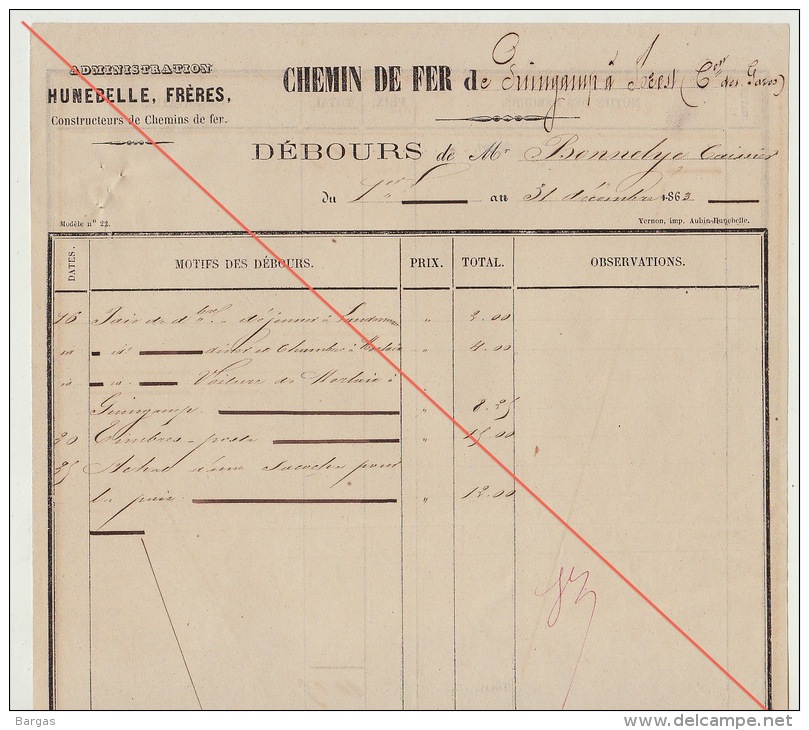 ADMINISTRATION
HUNEBELLE, FRÈRES,
Constructeurs de Chemins de fer.
CHEMIN DE FER de Guingamp à Brest (Con des Gares)
DÉBOURS de Mr Bonnelye Caissier
du 1er au 31 décembre 1863
Modèle no 22.
Vernon, imp. Aubin-Hunebelle.
DATES. MOTIFS DES DÉBOURS. PRIX. TOTAL. OBSERVATIONS.
16 Paie de déjeuner à Landerneau " 3.00
id id dîner et Chambre à Morlaix " 4.00
id id Voiture de Morlaix à
Guingamp " 8.25
20 Timbres-poste " 15.00
25 Achat d'une Sacoche pour
la paie " 12.00
Bargas
www.delcampe.net